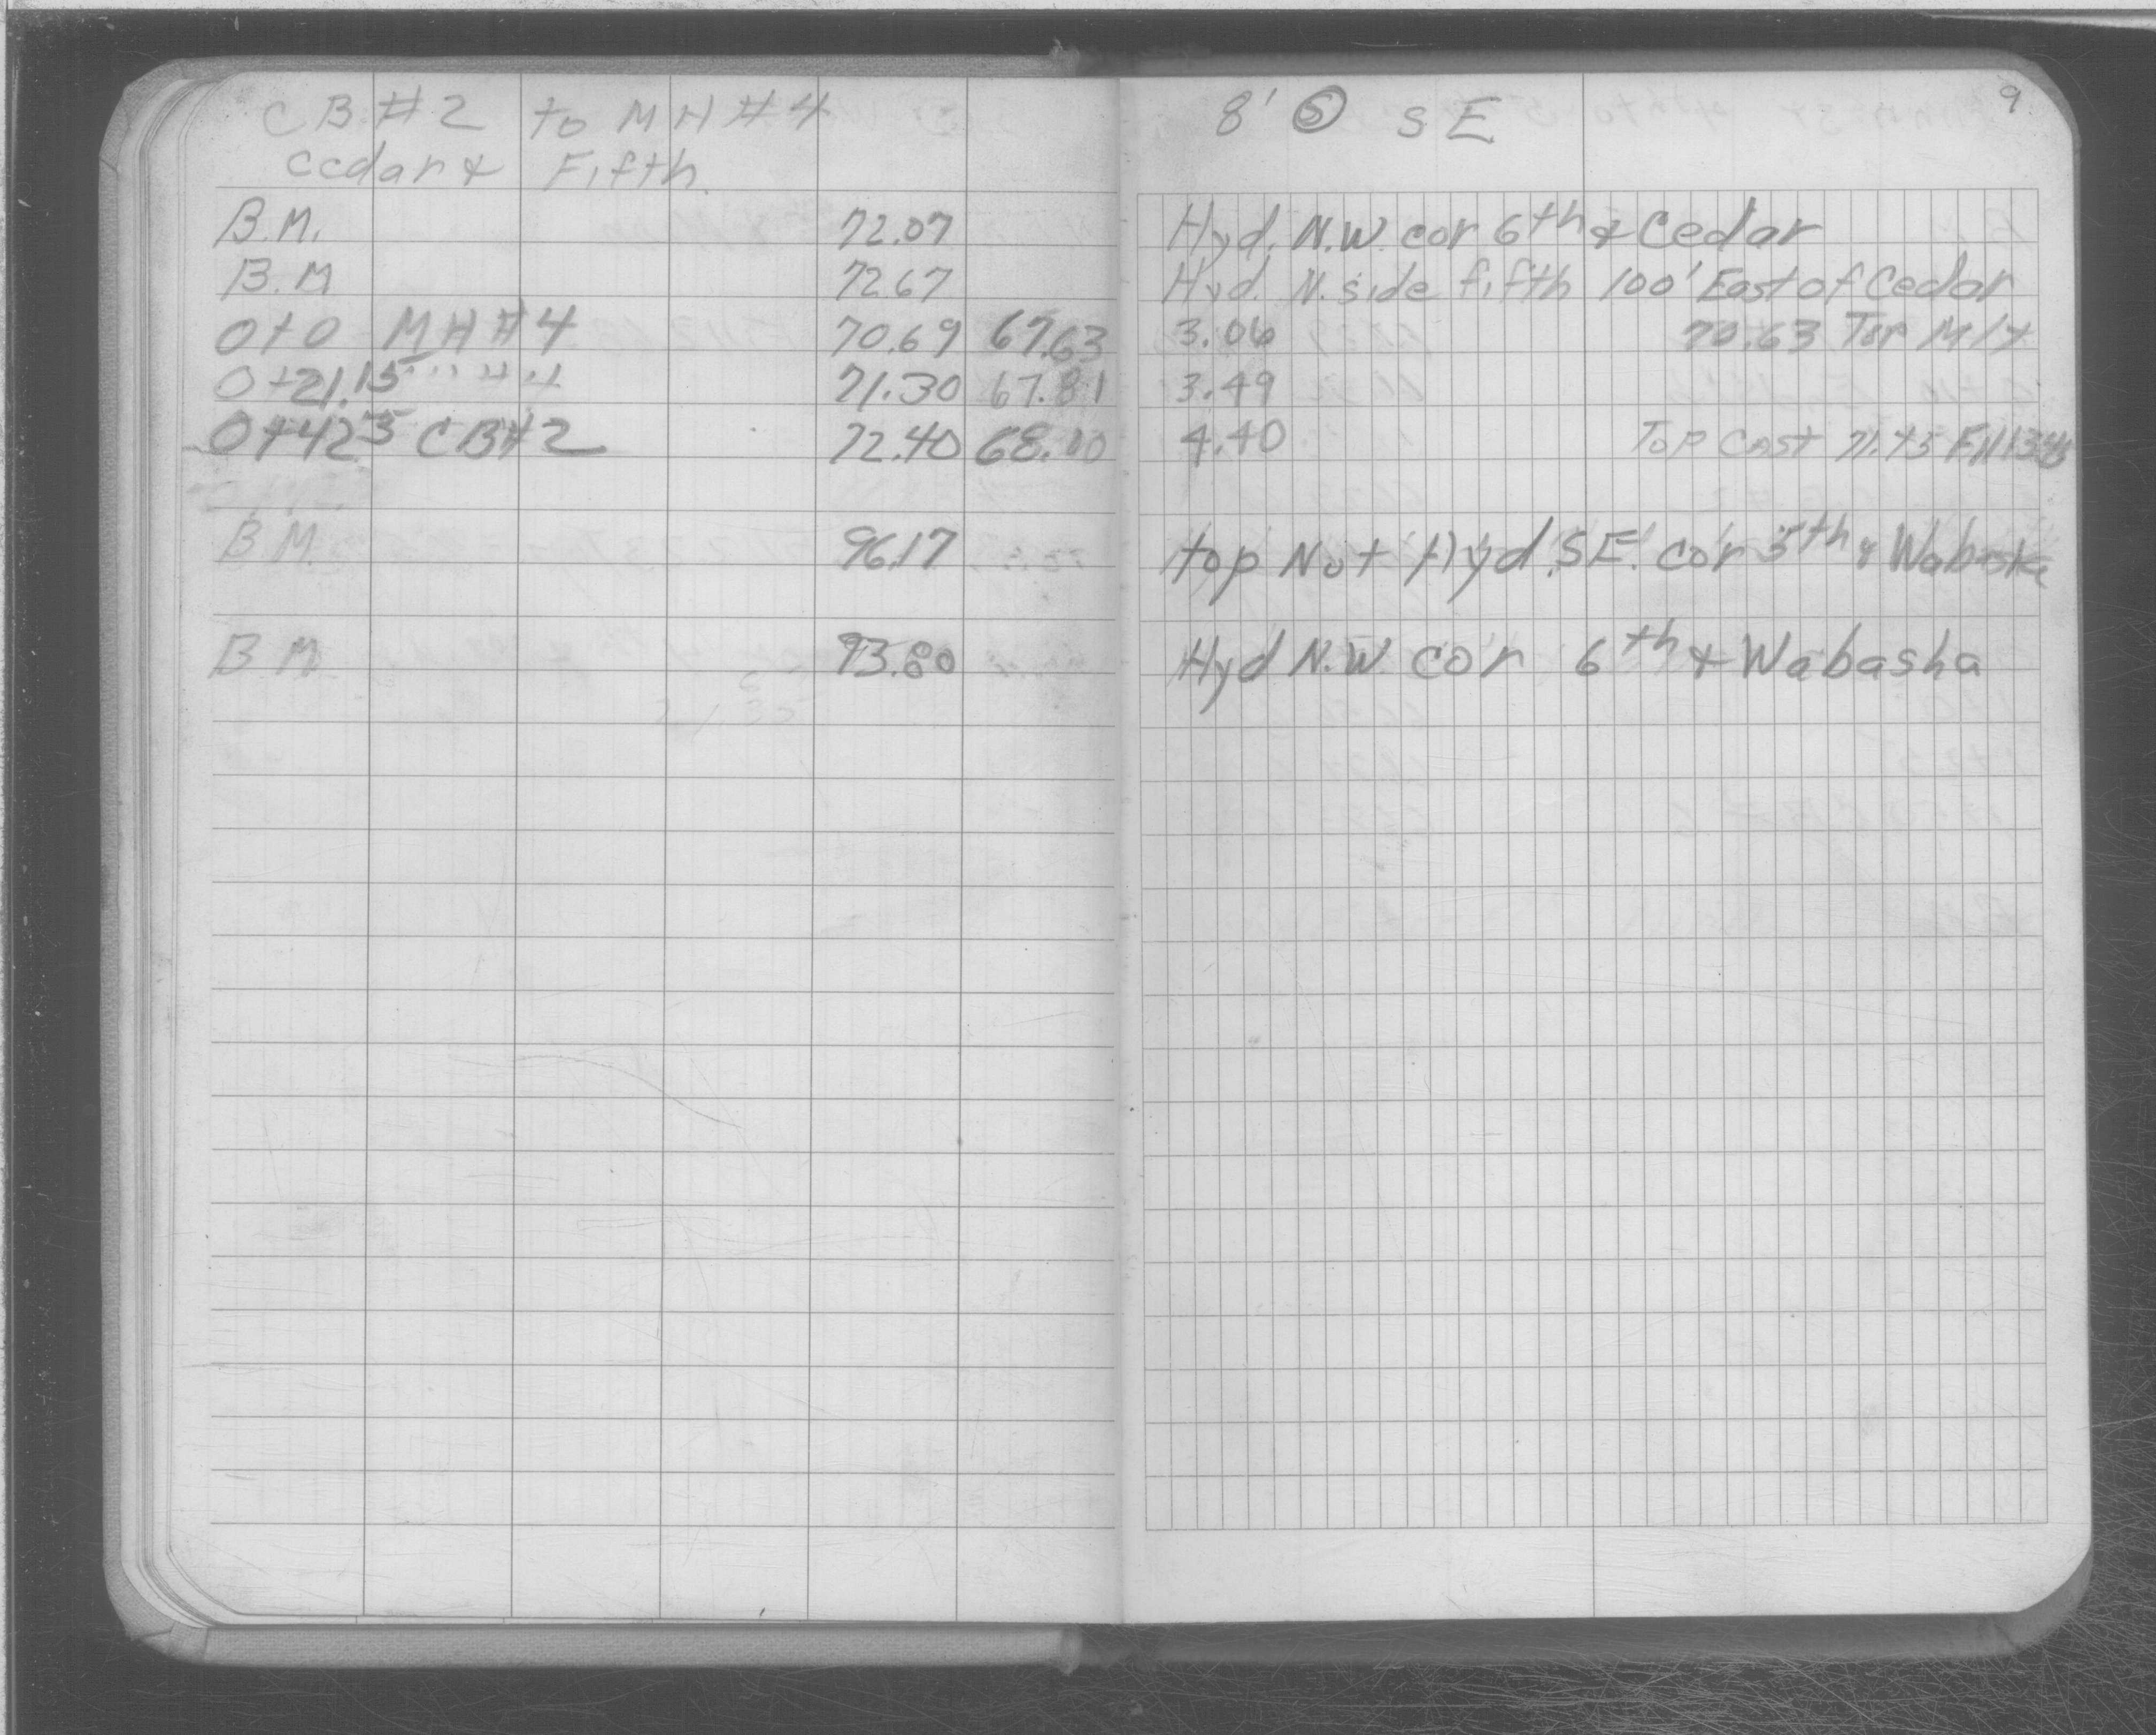 CB #2 to MH #4
Cedar & Fifth
8' Ⓢ SE
9
B.M. 72.07 Hyd. N.W. cor 6th & Cedar
B.M 72.67 Hyd. N. side fifth 100' East of Cedar
0+0 MH #4 70.69 67.63 3.06 70.63 Top M/H
0+21.15 " " " " 71.30 67.81 3.49
0+42.3 CB#2 72.40 68.00 4.40 Top Cast 71.45 Fill
B M. 96.17 top Nut Hyd. S.E. cor 5th & Wabasha
B M. 93.80 Hyd N.W. cor 6th & Wabasha